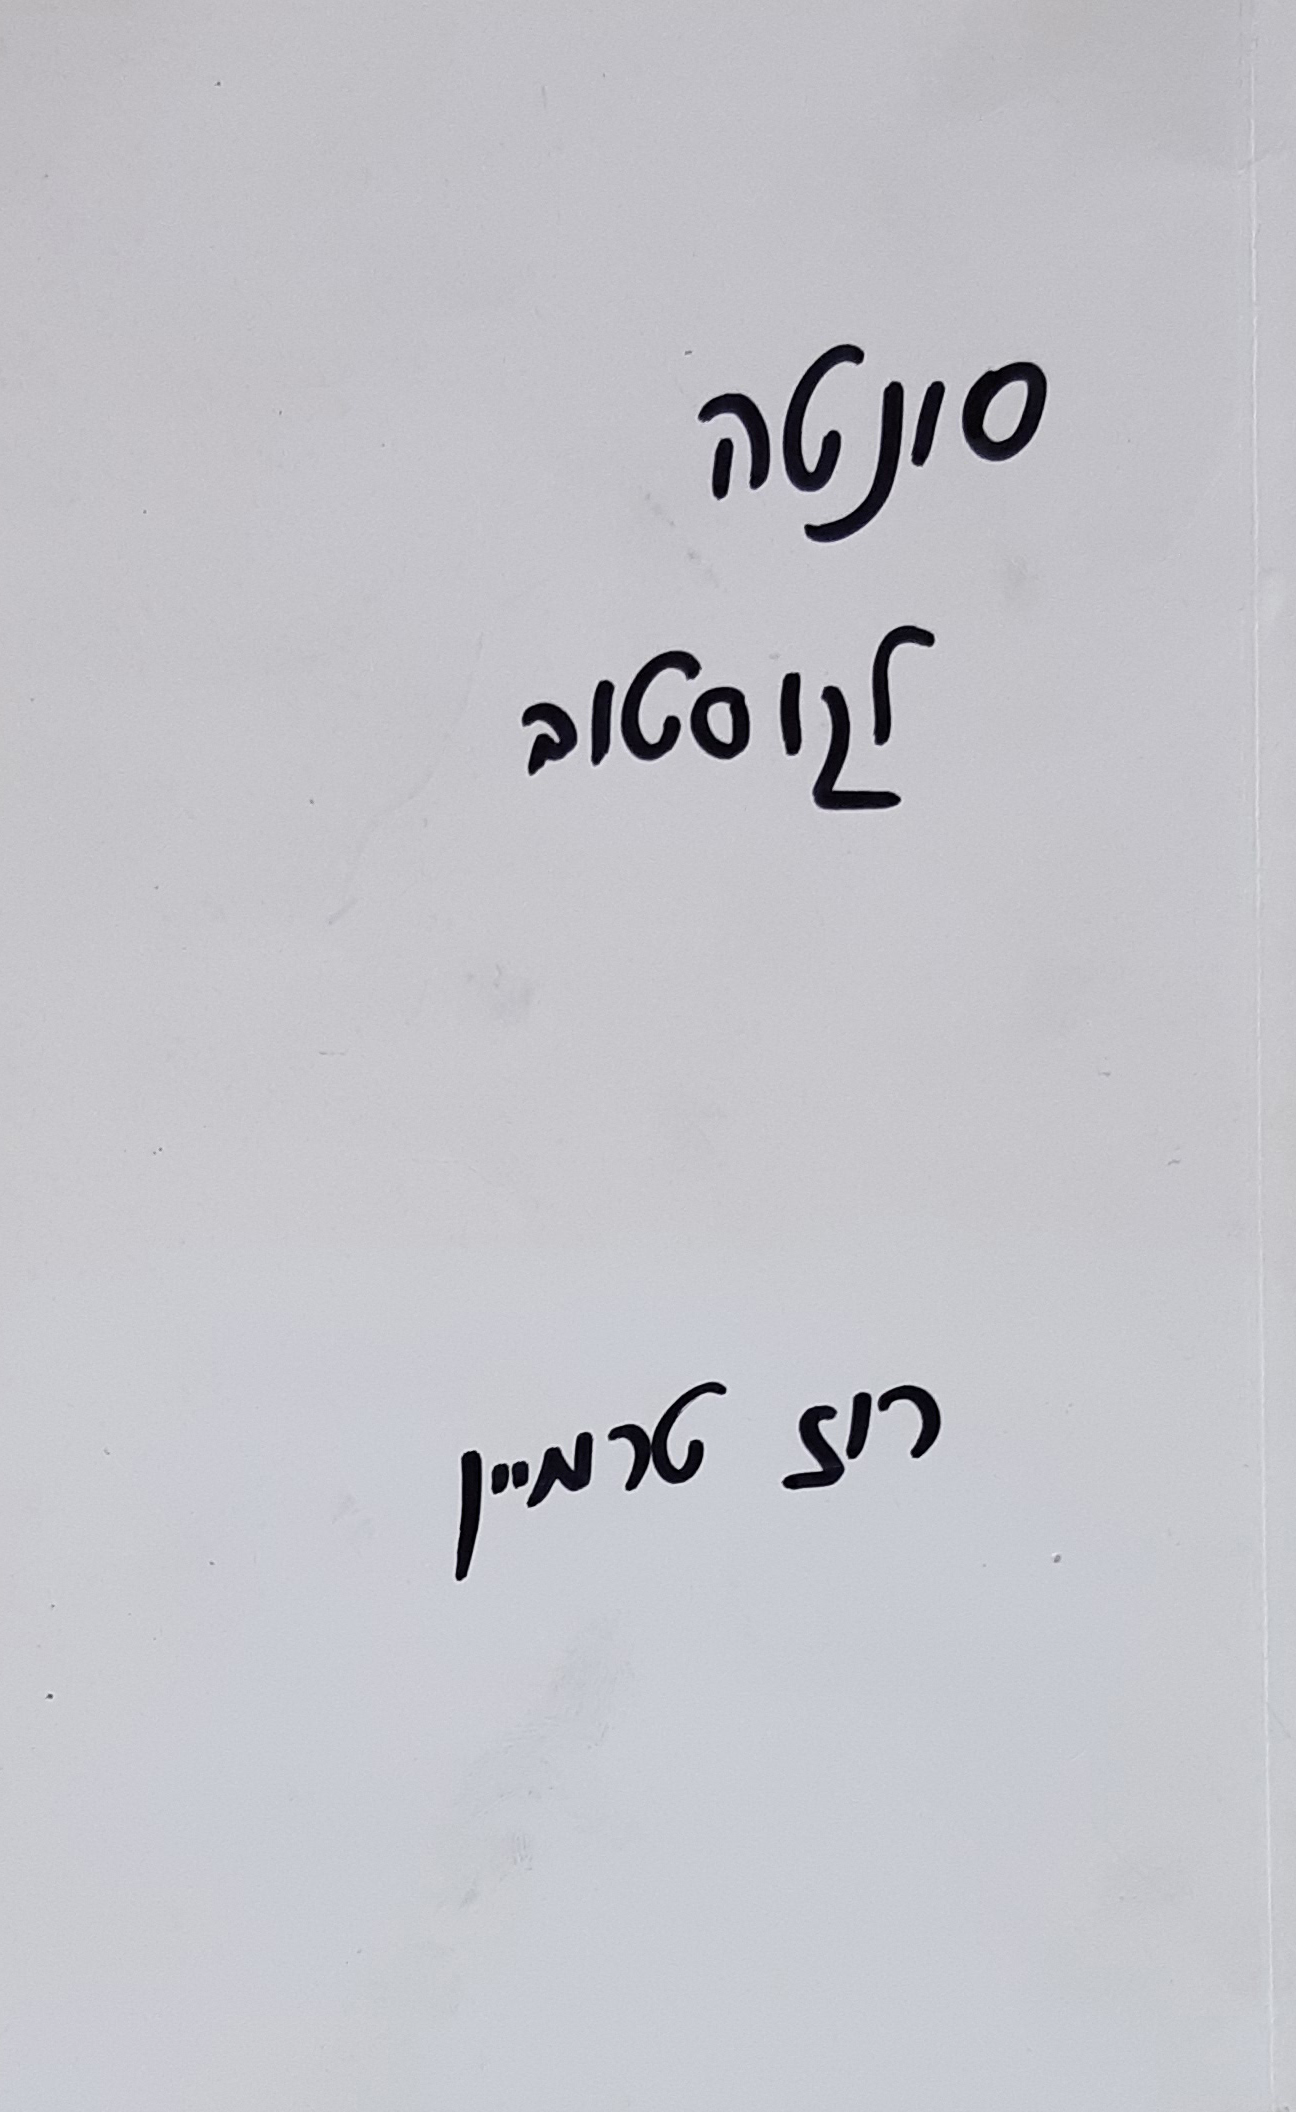 סונטה
לגוסטוב
רוז טרמיין